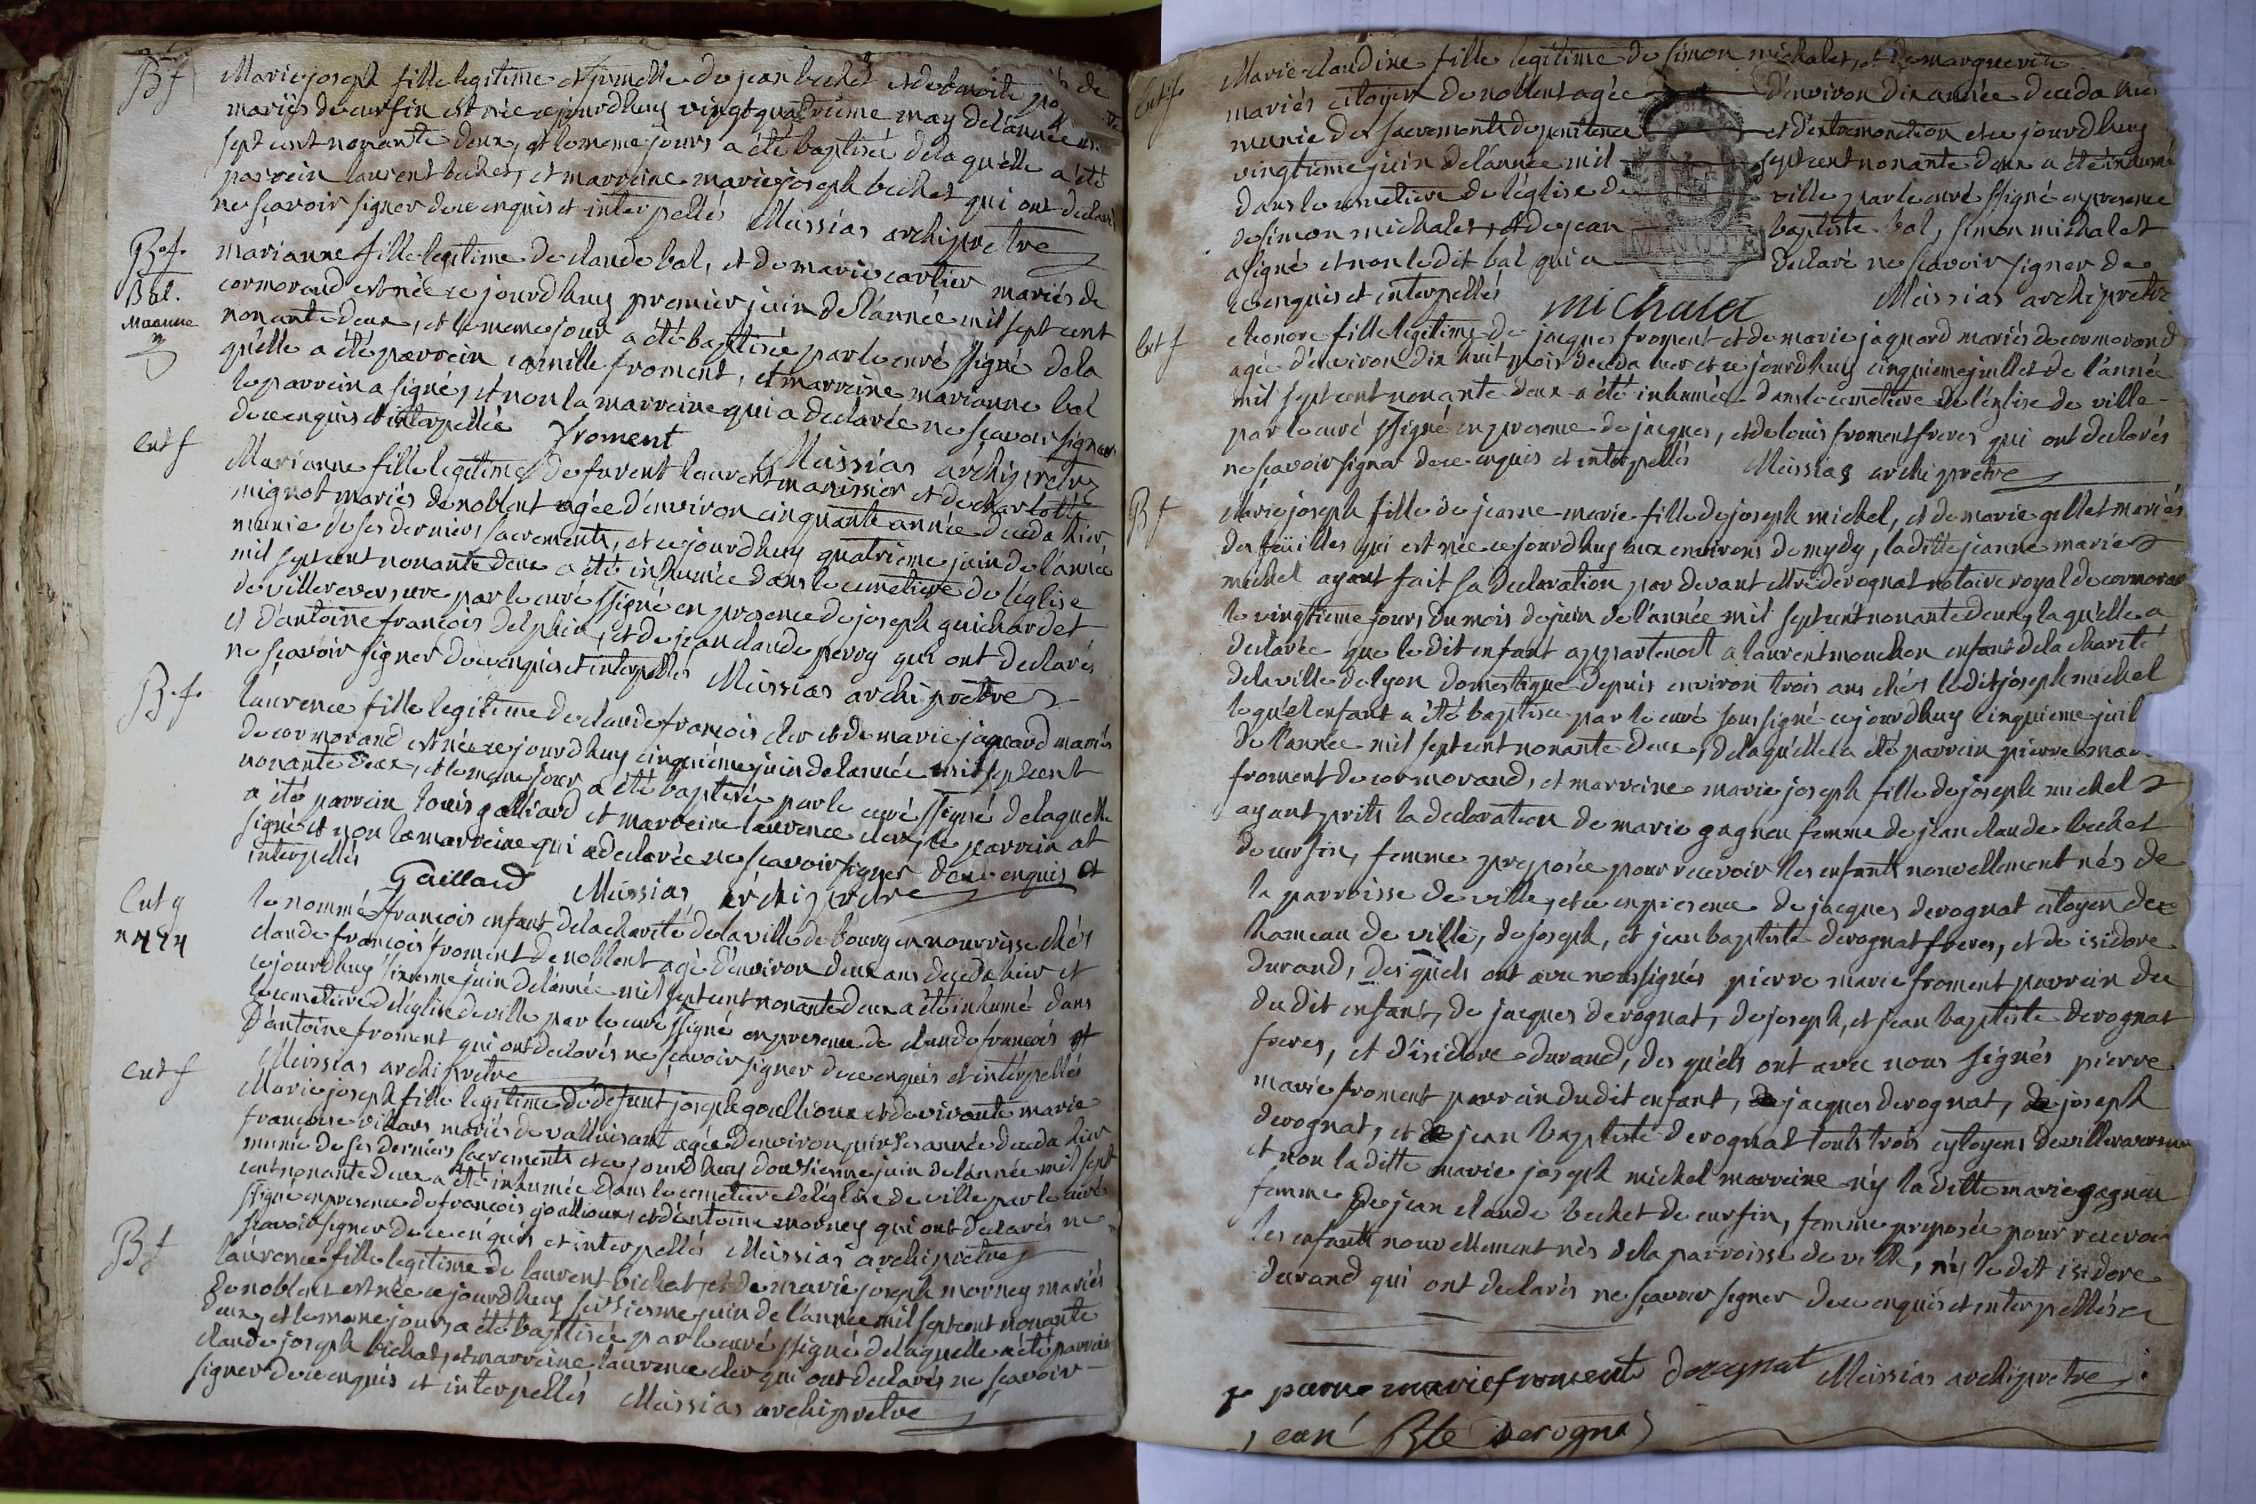 Bf
Marie joseph fille legitime et jumelle de jean bechet et de benoite
mariés de curfin est née ce jourdhuy vingt quatrieme may de l'année mil
sept cent nonante deux, et le meme jours a été baptisée de la quélle a été
parrein laurent bechet, et marreine marie joseph bechet qui ont declaré
ne sçavoir signer de ce enquis et interpellés Messias archiprétre
B.f.
Bal.
Maanne
marianne fille legitime de claude bal, et de marie cartier mariés de
cormorand est née ce jourdhuy premier juin de l'année mil sept cent
nonante deux, et le meme jour a été baptisée par le curé ssigné de la
quélle a été parrein camille froment, et marreine marianne bal
le parrein a signé, et non la marreine qui a declarée ne sçavoir signer
de ce enquis et interpellée froment Messias archiprétre
Ent f
Marianne fille legitime de furent laurent manissier et de charlotte
mignot mariés de noblent agée d'environ cinquante année deceda hier
munie de ses derniers sacrements, et ce jourdhuy quatrieme juin de l'année
mil sept cent nonante deux a été inhumée dans le cimetiere de l'église
de villereversure par le curé ssigné en presence de joseph guichardet
et d'antoine françois delphin, et de jean claude perry qui ont declarés
ne sçavoir signer de ce enquis et interpellés Messias archiprétre
B.f.
laurence fille legitime de claude françois cler et de marie jaquard mariés
de cormorand est née ce jourdhuy cinquiéme juin de l'année mil sept cent
nonante deux, et le meme jour a été baptisée par le curé ssigné de laquelle
a été parrein louis galliard et marreine laurence cler, le parrein at
signé et non la marreine qui a declarée ne sçavoir signer de ce enquis et
interpellés Gaillard Messias archiprétre
Ent g
le nommé françois enfant de la charité de la ville de bourg en nourrisse chés
claude françois froment de noblent agé d'environ deux ans deceda hier et
ce jourdhuy sixiesme juin de l'année mil sept cent nonante deux a été inhumé dans
le cemetiere de l'église de ville par le curé ssigné en presence de claude françois et
d'antoine froment qui ont declarés ne sçavoir signer de ce enquis et interpellés
Messias archiprétre
Ent f
Marie joseph fille legitime de defunt joseph goullioux et de vivante marie
françoise villars mariés de valluisant agée d'environ quinse année deceda hier
munie de ses derniers sacrements et ce jourdhuy dousieme juin de l'année mil sept
cent nonante deux a été inhumée dans le cemetiere de l'église de ville par le curé
ssigné en presence de françois goullioux, et d'antoine morney qui ont declarés ne
sçavoir signer de ce enquis et interpellés Messias archiprétre
Bf
laurence fille legitime de laurent bichat, et de marie joseph morney mariés
de noblent est née ce jourdhuy seissieme juin de l'année mil sept cent nonante
deux, et le meme jours a été baptisée par le curé ssigné de laquélle a été parrein
claude joseph bichat, et marreine laurence cler qui ont declarés ne sçavoir
signer de ce enquis et interpellés Messias archiprétre
Ent f
Marie claudine fille legitime de simon michalet, et de marguerite
mariés citoyen de noblent agée d'environ dix année deceda hier
munie des sacrements de penitence et d'extremonction et ce jourdhuy
vingtieme juin de l'année mil sept cent nonante deux a été inhumé
dans le cemetiere de l'église de ville par le curé ssigné en presence
de simon michalet, et de jean baptiste bal, simon michalet
a signé et non le dit bal qui a declaré ne sçavoir signer de
ce enquis et interpellés michalet Messias archiprétre
MINUTE
Ent f
eleonore fille legitime de jacques froment et de marie jaquard mariés de cormorand
agée d'environ dix huit mois deceda hier et ce jourdhuy cinquieme juillet de l'année
mil sept cent nonante deux a été inhumée dans le cemetiere de l'église de ville
par le curé ssigné en presence de jacques, et de louis froment freres qui ont declarés
ne sçavoir signer de ce enquis et interpellés Messias archiprétre
Bf
Marie joseph fille de jeanne marie fille de joseph michel, et de marie gillet mariés
des feüilles qui est née ce jourdhuy aux environs de mydy, la ditte jeanne marie
michel ayant fait sa declaration par devant Mre derognat notaire royal de cormoran
le vingtieme jours du mois de juin de l'année mil sept cent nonante deux, la quélle a
declarée que le dit enfant appartenoit a laurent mouchon enfant de la charité
de la ville de lyon domestique depuis environ trois ans chés le dit joseph michel
le quél enfant a été baptisée par le curé soussigné ce jourdhuy cinquieme juil
de l'année mil sept cent nonante deux, de laquélle a été parrein pierre mar
froment de cormorand, et marreine marie joseph fille de joseph michel
ayant prits la declaration de marie gagneu femme de jean claude bechet
de curfin, femme preposée pour recevoir les enfants nouvellement nés de
la parroisse de ville, et ce en presence de jacques derognat citoyen de
hameau de ville, de joseph, et jean baptiste derognat freres, et de isidore
durand, desquéls ont avec nous signés pierre marie froment parrein du
du dit enfant, de jacques derognat, de joseph, et jean baptiste derognat
freres, et d'isidore durand, des quéls ont avec nous signés pierre
marie froment parrein du dit enfant, jacques derognat, joseph
derognat, et jean baptiste derognat touts trois cytoyens de villereversure
et non la ditte marie joseph michel marreine n'y la ditte marie gagneu
femme de jean claude bechet de curfin, femme preposée pour recevoir
les enfants nouvellement nés de la parroisse de ville, n'y le dit isidore
durand qui ont declarés ne sçavoir signer de ce enquis et interpellés
pierre marie froment derognat Messias archiprétre
jean Bte derognat